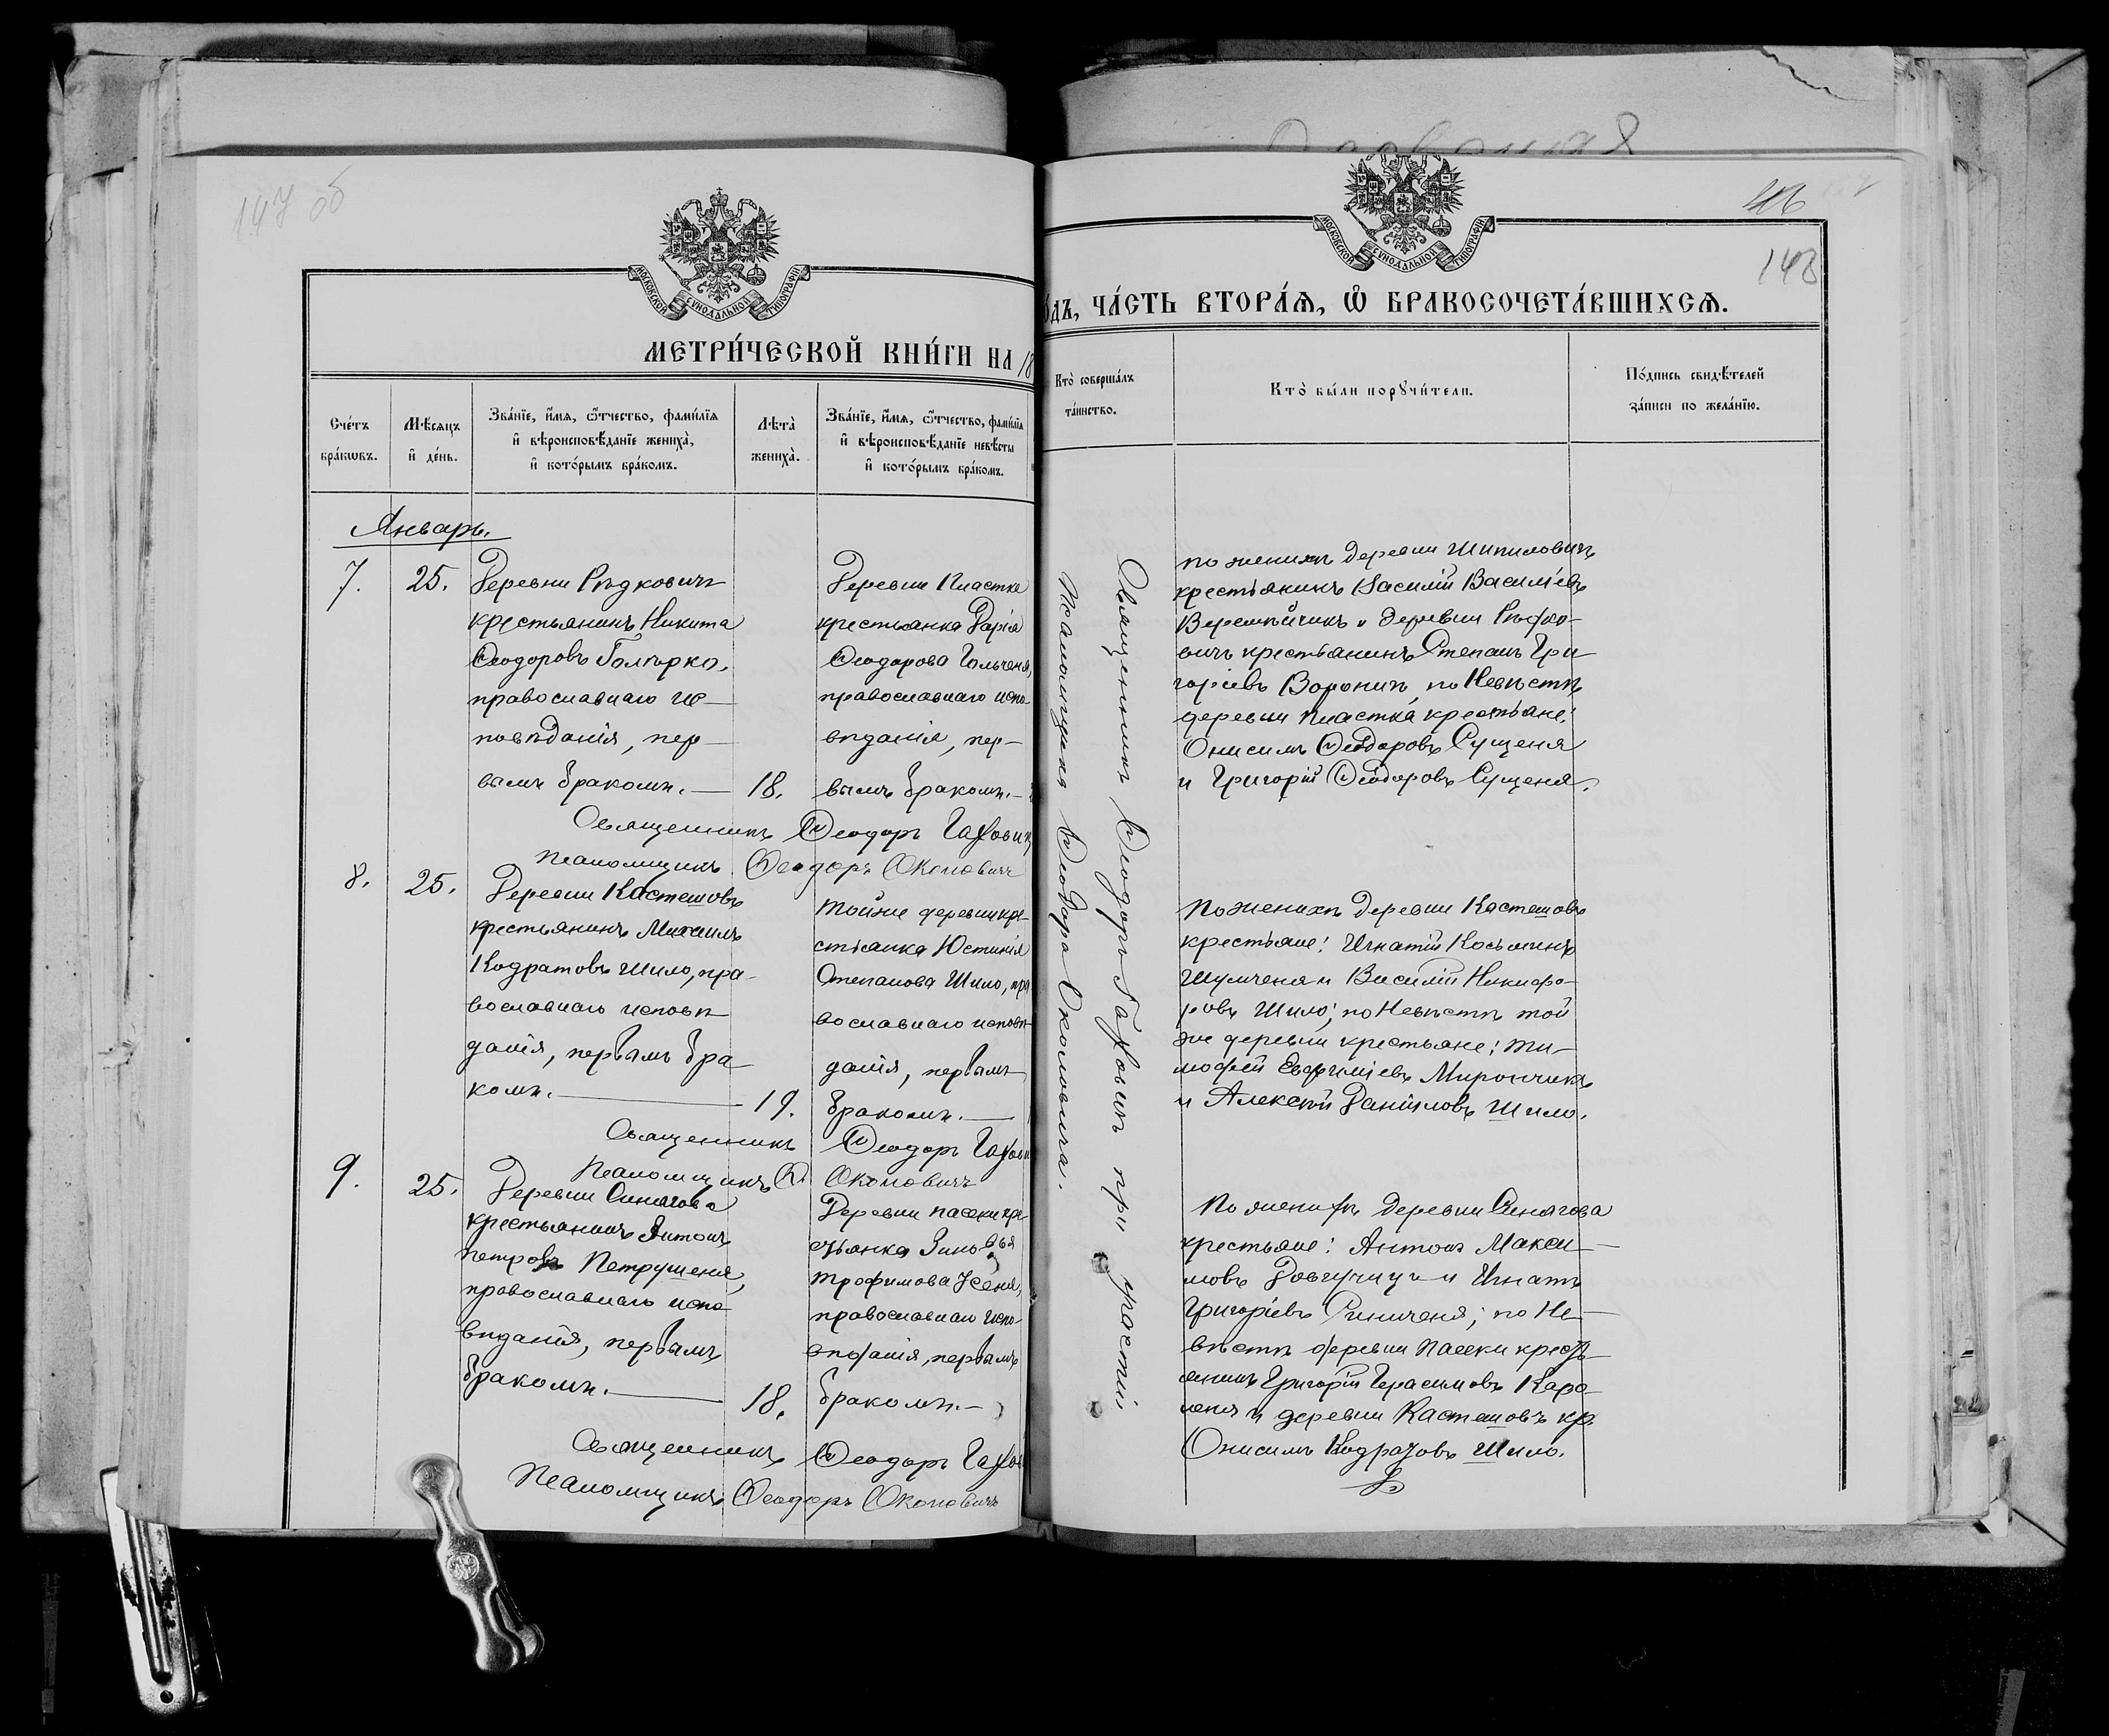 147 об
МОСКОВСКОЙ СѴНОДАЛЬНОЙ ТИПОГРАФІИ
МЕТРИ́ЧЕСКОЙ КНИ́ГИ НА 18
Сче́тъ бра́кѡвъ.
Мѣ́сяцъ и҆ де́нь.
Зва́нїе, и҆́мѧ, ѻ҆́тчество, фами́лїѧ и҆ вѣроисповѣ́данїе жениха̀, и҆ кото́рымъ бра́комъ.
Лѣта̀ жениха̀.
Зва́нїе, и҆́мѧ, ѻ҆́тчество, фами́лїѧ и҆ вѣроисповѣ́данїе невѣ́сты и҆ кото́рымъ бра́комъ.
Январь.
7.
25.
Деревни Рѣдковичъ
крестьянинъ Никита
Ѳеодоровъ
православнаго ис-
повѣданія, пер-
вымъ бракомъ.
18.
Деревни Пластка
крестьянка Дарія
Ѳеодорова Гольченя,
православнаго испо-
вѣданія, пер-
вымъ бракомъ.
Священникъ Ѳеодоръ
Псаломщикъ Ѳеодоръ Околовичъ
8.
25.
Деревни Кастешовъ
крестьянинъ Михаилъ
Кодратовъ Шило, пра-
вославнаго исповѣ-
данія, первымъ бра-
комъ.
19.
Той же деревни кре-
стьянка Юстинія
Степанова Шило, пра
вославнаго исповѣ-
данія, первымъ
бракомъ.
Священникъ Ѳеодоръ
Псаломщикъ Ѳ. Околовичъ
9.
25.
Деревни Синягова
крестьянинъ Антонъ
Петровъ Петрушеня,
православнаго испо-
вѣданія, первымъ
бракомъ.
18.
Деревни Пасеки кре-
стьянка Зиновья
Трофимова Усеня,
православнаго испо-
вѣданія, первымъ
бракомъ.
Священникъ Ѳеодоръ
Псаломщикъ Ѳеодоръ Околовичъ
148
МОСКОВСКОЙ СѴНОДАЛЬНОЙ ТИПОГРАФІИ
о́дъ, ЧА́СТЬ ВТОРА́Ѧ, Ѽ БРАКОСОЧЕТА́ВШИХСѦ.
Кто̀ соверша́лъ та́инство.
Кто̀ бы́ли порꙋчи́тели.
По́дпись свидѣ́телей за́писи по жела́нїю.
Священникъ Ѳеодоръ при участіи
Псаломщика Ѳеодора Околовича.
По женихѣ деревни Шипиловичъ
крестьянинъ Василій Васильевъ
Веремейчикъ и деревни Рѣдко-
вичъ крестьянинъ Степанъ Гри-
горьевъ Воронич, по Невѣстѣ
деревни Пластка крестьяне:
Онисимъ Ѳеодоровъ Сущеня
и Григорій Ѳеодоровъ Сущеня.
По женихѣ деревни Кастешовъ
крестьяне: Игнатій Косьминъ
Шумченя и Василій Никифо-
ровъ Шило; по Невѣстѣ той
же деревни крестьяне: Ти-
мофей Евфиміевъ Мирончикъ
и Алексѣй Даніиловъ Шило.
По женихѣ деревни Синягова
крестьяне: Антонъ Макси-
мовъ и Игнатъ
Григорьевъ; по Не-
вѣстѣ деревни Пасеки кресть-
янинъ Григорій Герасимовъ Каро-
леня и деревни Кастешовъ кр.
Онисимъ Кодратовъ Шило.